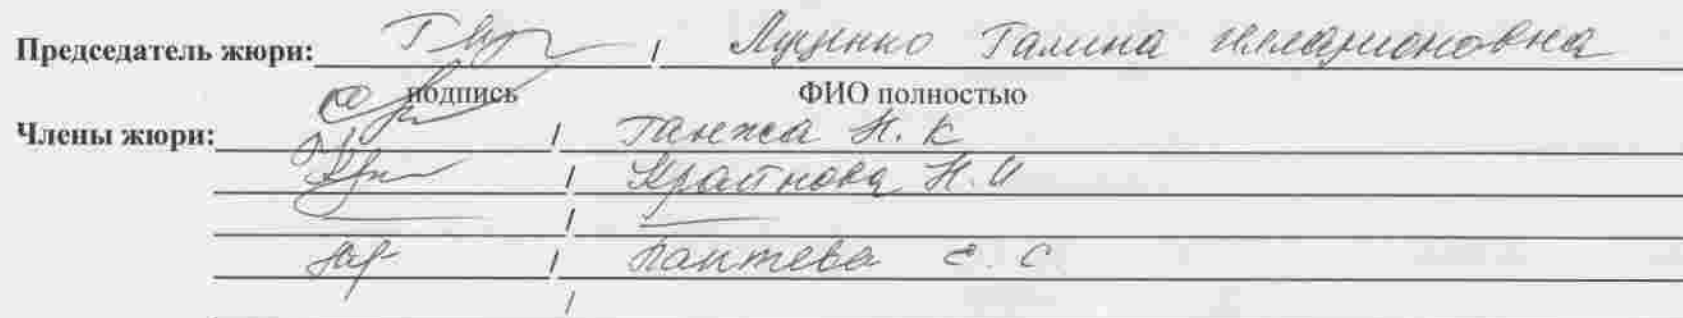 Председатель жюри: / Луценко Галина Илларионовна
подпись ФИО полностью
Члены жюри: / Ганжа Н. К
/ Н. И
/
/ Лаптева Е. С
/